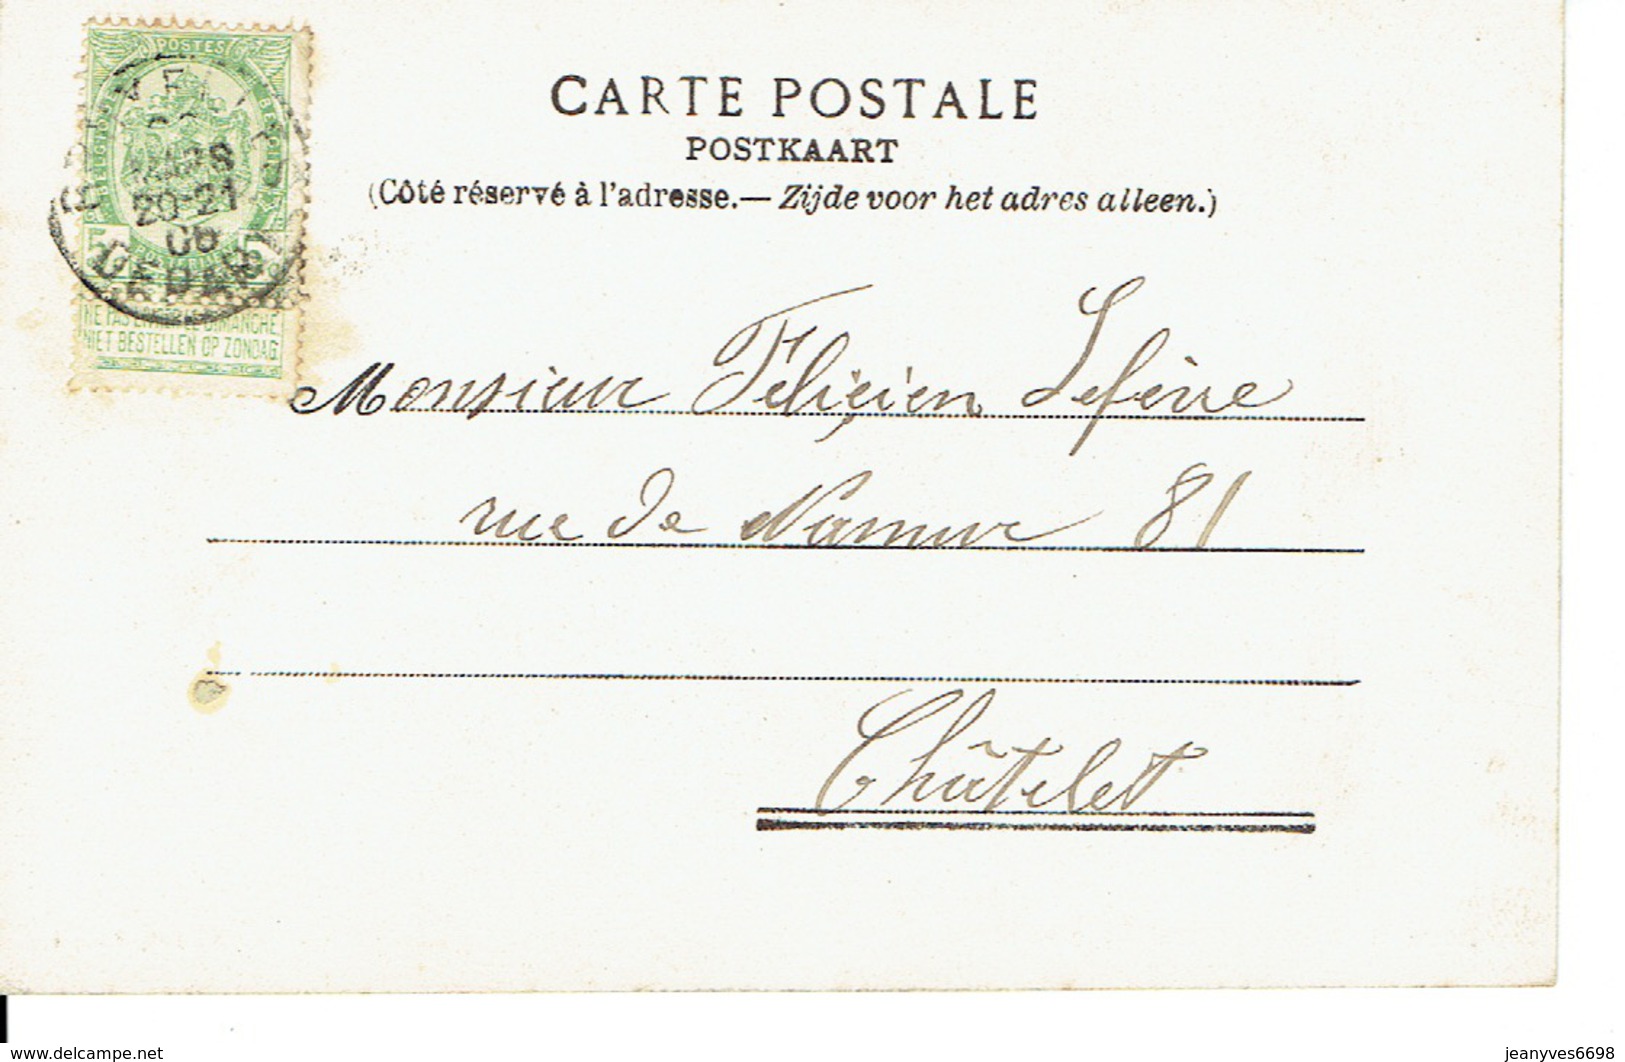 POSTES
MARS
20-21
06
DÉPART
5 5
NE PAS LIVRER LE DIMANCHE
NIET BESTELLEN OP ZONDAG
CARTE POSTALE
POSTKAART
(Côté réservé à l'adresse.— Zijde voor het adres alleen.)
Monsieur Féliçien Lefèvre
rue de Namur 81
Châtelet
www.delcampe.net
jeanyves6698